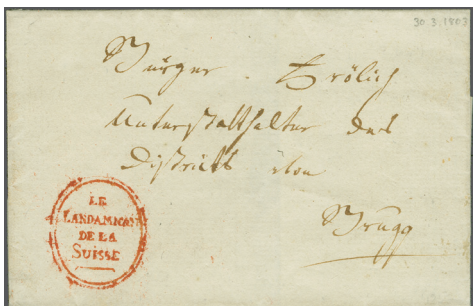 30.3.1803
Bürger Frölich
Unterstatthalter des
Districts von
Brugg
LE
LANDAMMAN
DE LA
SUISSE